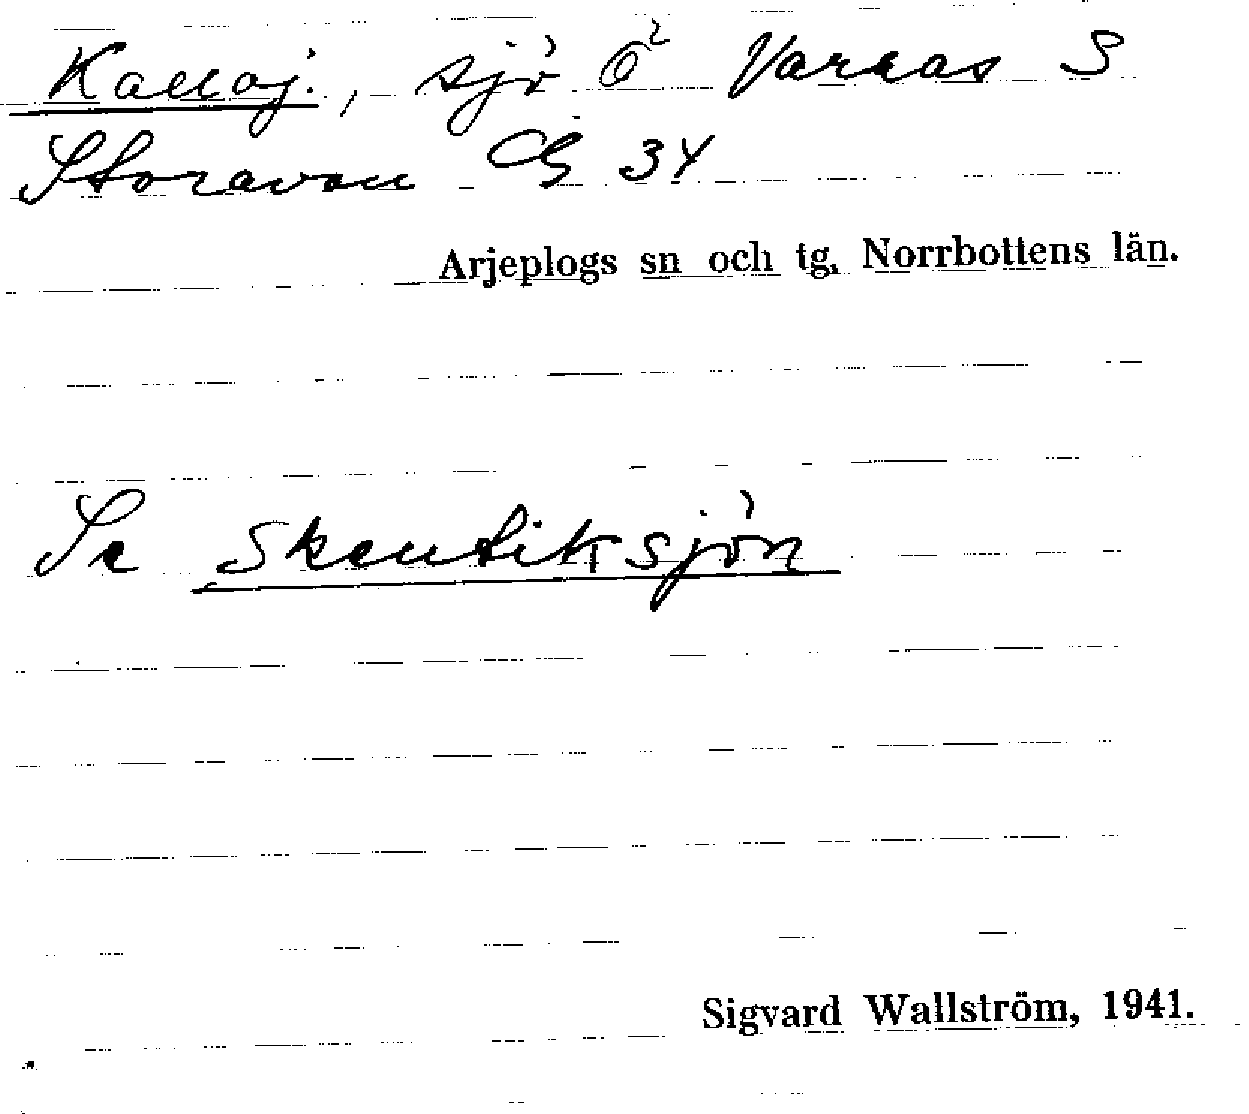 Kallaj., sjö Ö Varras S
Storavan CG 34
Arjeplogs sn och tg. Norrbottens län.
Se Skeutiksjön
Sigvard Wallström, 1941.